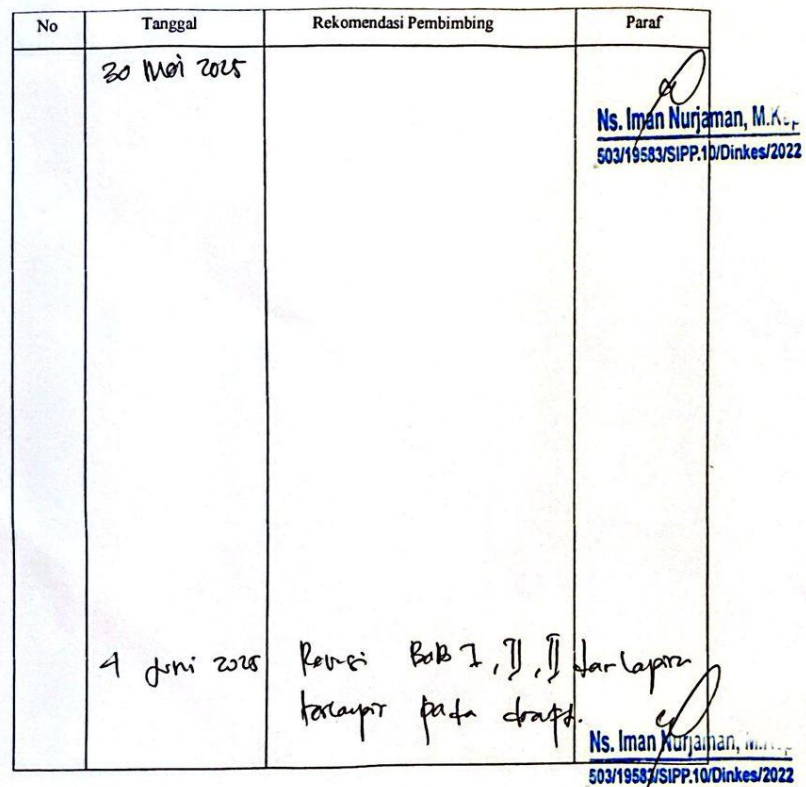 No Tanggal Rekomendasi Pembimbing Paraf
30 Mei 2025
Ns. Iman Nurjaman, M.Kep
503/19583/SIPP.10/Dinkes/2022
4 Juni 2025 Revisi BAB I, II, II
pada draft.
Ns. Iman Nurjaman,
503/19583/SIPP.10/Dinkes/2022